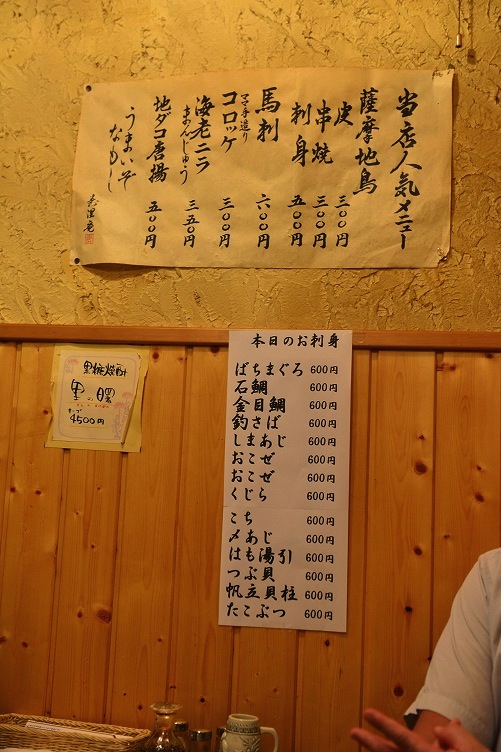 当店人気メニュー
薩摩地鳥
皮 三〇〇円
串焼 三〇〇円
刺身 五〇〇円
馬刺 六〇〇円
ママ手造り
コロッケ 三〇〇円
海老ニラ
まんじゅう 三五〇円
地ダコ唐揚 五〇〇円
うまいぞ
なもし
本日のお刺身
ばちまぐろ 600円
石鯛 600円
金目鯛 600円
釣さば 600円
しまあじ 600円
おこぜ 600円
おこぜ 600円
くじら 600円
こち 600円
〆あじ 600円
はも湯引 600円
つぶ貝 600円
帆立貝柱 600円
たこぶつ 600円
黒糖焼酎
4500円